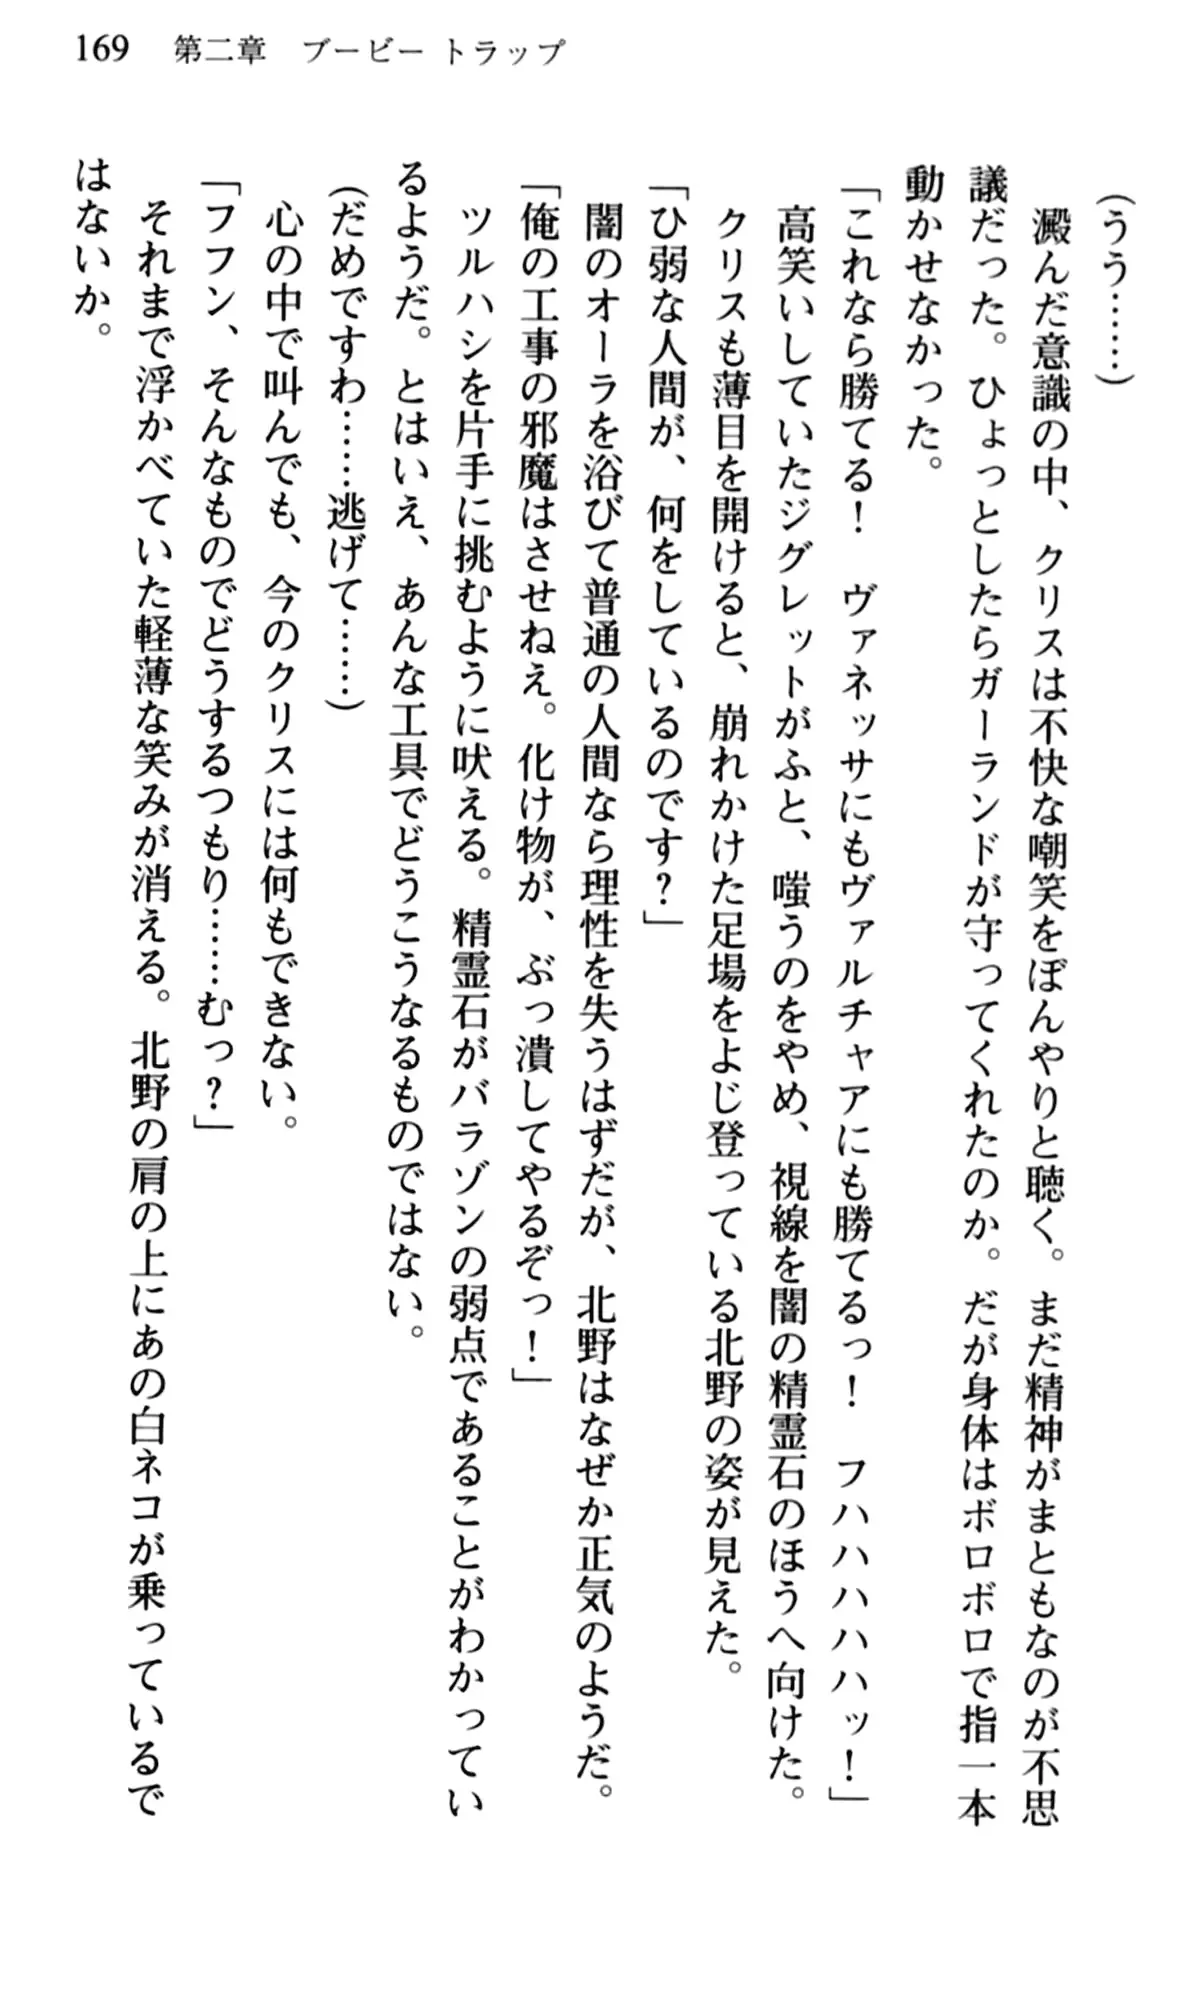 169 第二章 ブービー トラップ
(うう……)
　澱んだ意識の中、クリスは不快な嘲笑をぼんやりと聴く。まだ精神がまともなのが不思
議だった。ひょっとしたらガーランドが守ってくれたのか。だが身体はボロボロで指一本
動かせなかった。
「これなら勝てる！　ヴァネッサにもヴァルチャアにも勝てるっ！　フハハハハハッ！」
　高笑いしていたジグレットがふと、嗤うのをやめ、視線を闇の精霊石のほうへ向けた。
　クリスも薄目を開けると、崩れかけた足場をよじ登っている北野の姿が見えた。
「ひ弱な人間が、何をしているのです？」
　闇のオーラを浴びて普通の人間なら理性を失うはずだが、北野はなぜか正気のようだ。
「俺の工事の邪魔はさせねえ。化け物が、ぶっ潰してやるぞっ！」
　ツルハシを片手に挑むように吠える。精霊石がバラゾンの弱点であることがわかってい
るようだ。とはいえ、あんな工具でどうこうなるものではない。
(だめですわ……逃げて……)
　心の中で叫んでも、今のクリスには何もできない。
「フフン、そんなものでどうするつもり……むっ？」
　それまで浮かべていた軽薄な笑みが消える。北野の肩の上にあの白ネコが乗っているで
はないか。